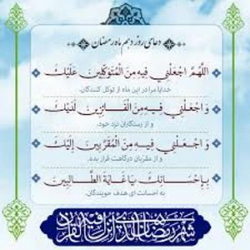 دعای روز دهم ماه رمضان
اَللّهُمَّ اجْعَلْنی فیهِ مِنَ الْمُتَوَکِّلینَ عَلَیْكَ
خدایا مرا در این ماه از توکل کنندگان،
وَ اجْعَلْنی فیهِ مِنَ الْفائِزینَ لَدَیْكَ
و از رستگاران نزد خود،
وَ اجْعَلْنی فیهِ مِنَ الْمُقَرَّبینَ اِلَیْكَ
و از مقربان درگاهت قرار بده.
بِاِحْسانِكَ یا غایَةَ الطّالِبینَ
به احسانت ای هدف جویندگان.
شهر رمضان الذی انزل فیه القرآن